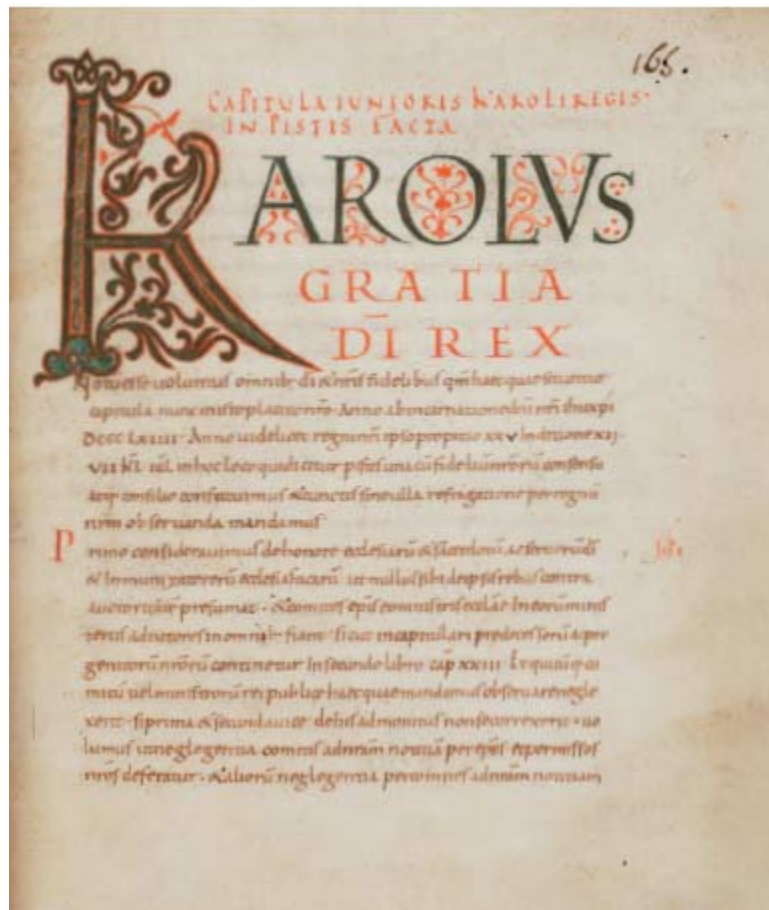 165.
CAPITULA IUNIORIS KAROLI REGIS·
IN PISTIS FACTA
KAROLVS
GRATIA
DI REX
Notu esse uolumus omnib; di & nris fidelibus qm haec quae sequntur
capitula nunc in isto placito nro Anno ab incarnatione dni nri ihu xpi
DCCC LXIIII · Anno uidelicet regni nri ipso propitio xxv Indictione XII
VII kl iul in hoc loco qui dicitur pistis una cu fideliu nroru consensu
atq; consilio constituimus & cunctis sine ulla refragatione per regnu
nrm observanda mandamus
P rimo consideravimus de honore ecclesiaru & sacerdotu ac servoru di
& immunitate reru ecclesiasticaru ut nullus sibi de ipsis rebus contra
auctoritate presumat · & comites epis & ministris ecclae In eoru minis
teriis adiutores in omnib; fiant · sicut in capitulari predecessoru & pro
genitoru nroru continetur In secundo libro cap XXIII Et quicuq; co
mitu uel ministroru rei publice haec quae mandamus observare negle
xerit · si prima & secunda uice de his admonitus non se correxerit · uo
lumus ut neglegentia comitis ad nram notitia per epos & per missos
nros deferatur · & alioru neglegentia per comites ad nram notitiam